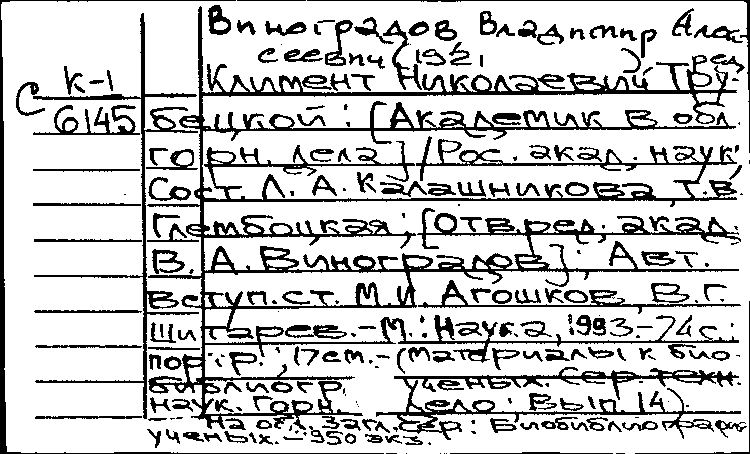 Виноградов Владимир Алек-
сеевич (1921 ) ред.
К-1
Климент Николаевий Тру-
С 6145
бецкой : [Академик в обл.
горн. дела] / Рос. акад. наук;
Сост. Л. А. Калашникова, Т.В.
Глембоцкая; [Отв.ред. акад.
В. А. Виноградов]; Авт.
вступ.ст. М.И. Агошков, В.Г.
Шитарев. - М.: Наука, 1993. - 74 с.:
портр.; 17см. - (Материалы к био-
библиогр. ученых. Сер. техн.
наук. Горн. дело; Вып. 14)
На обл. загл. сер: Биобиблиография
ученых. - 950 экз.